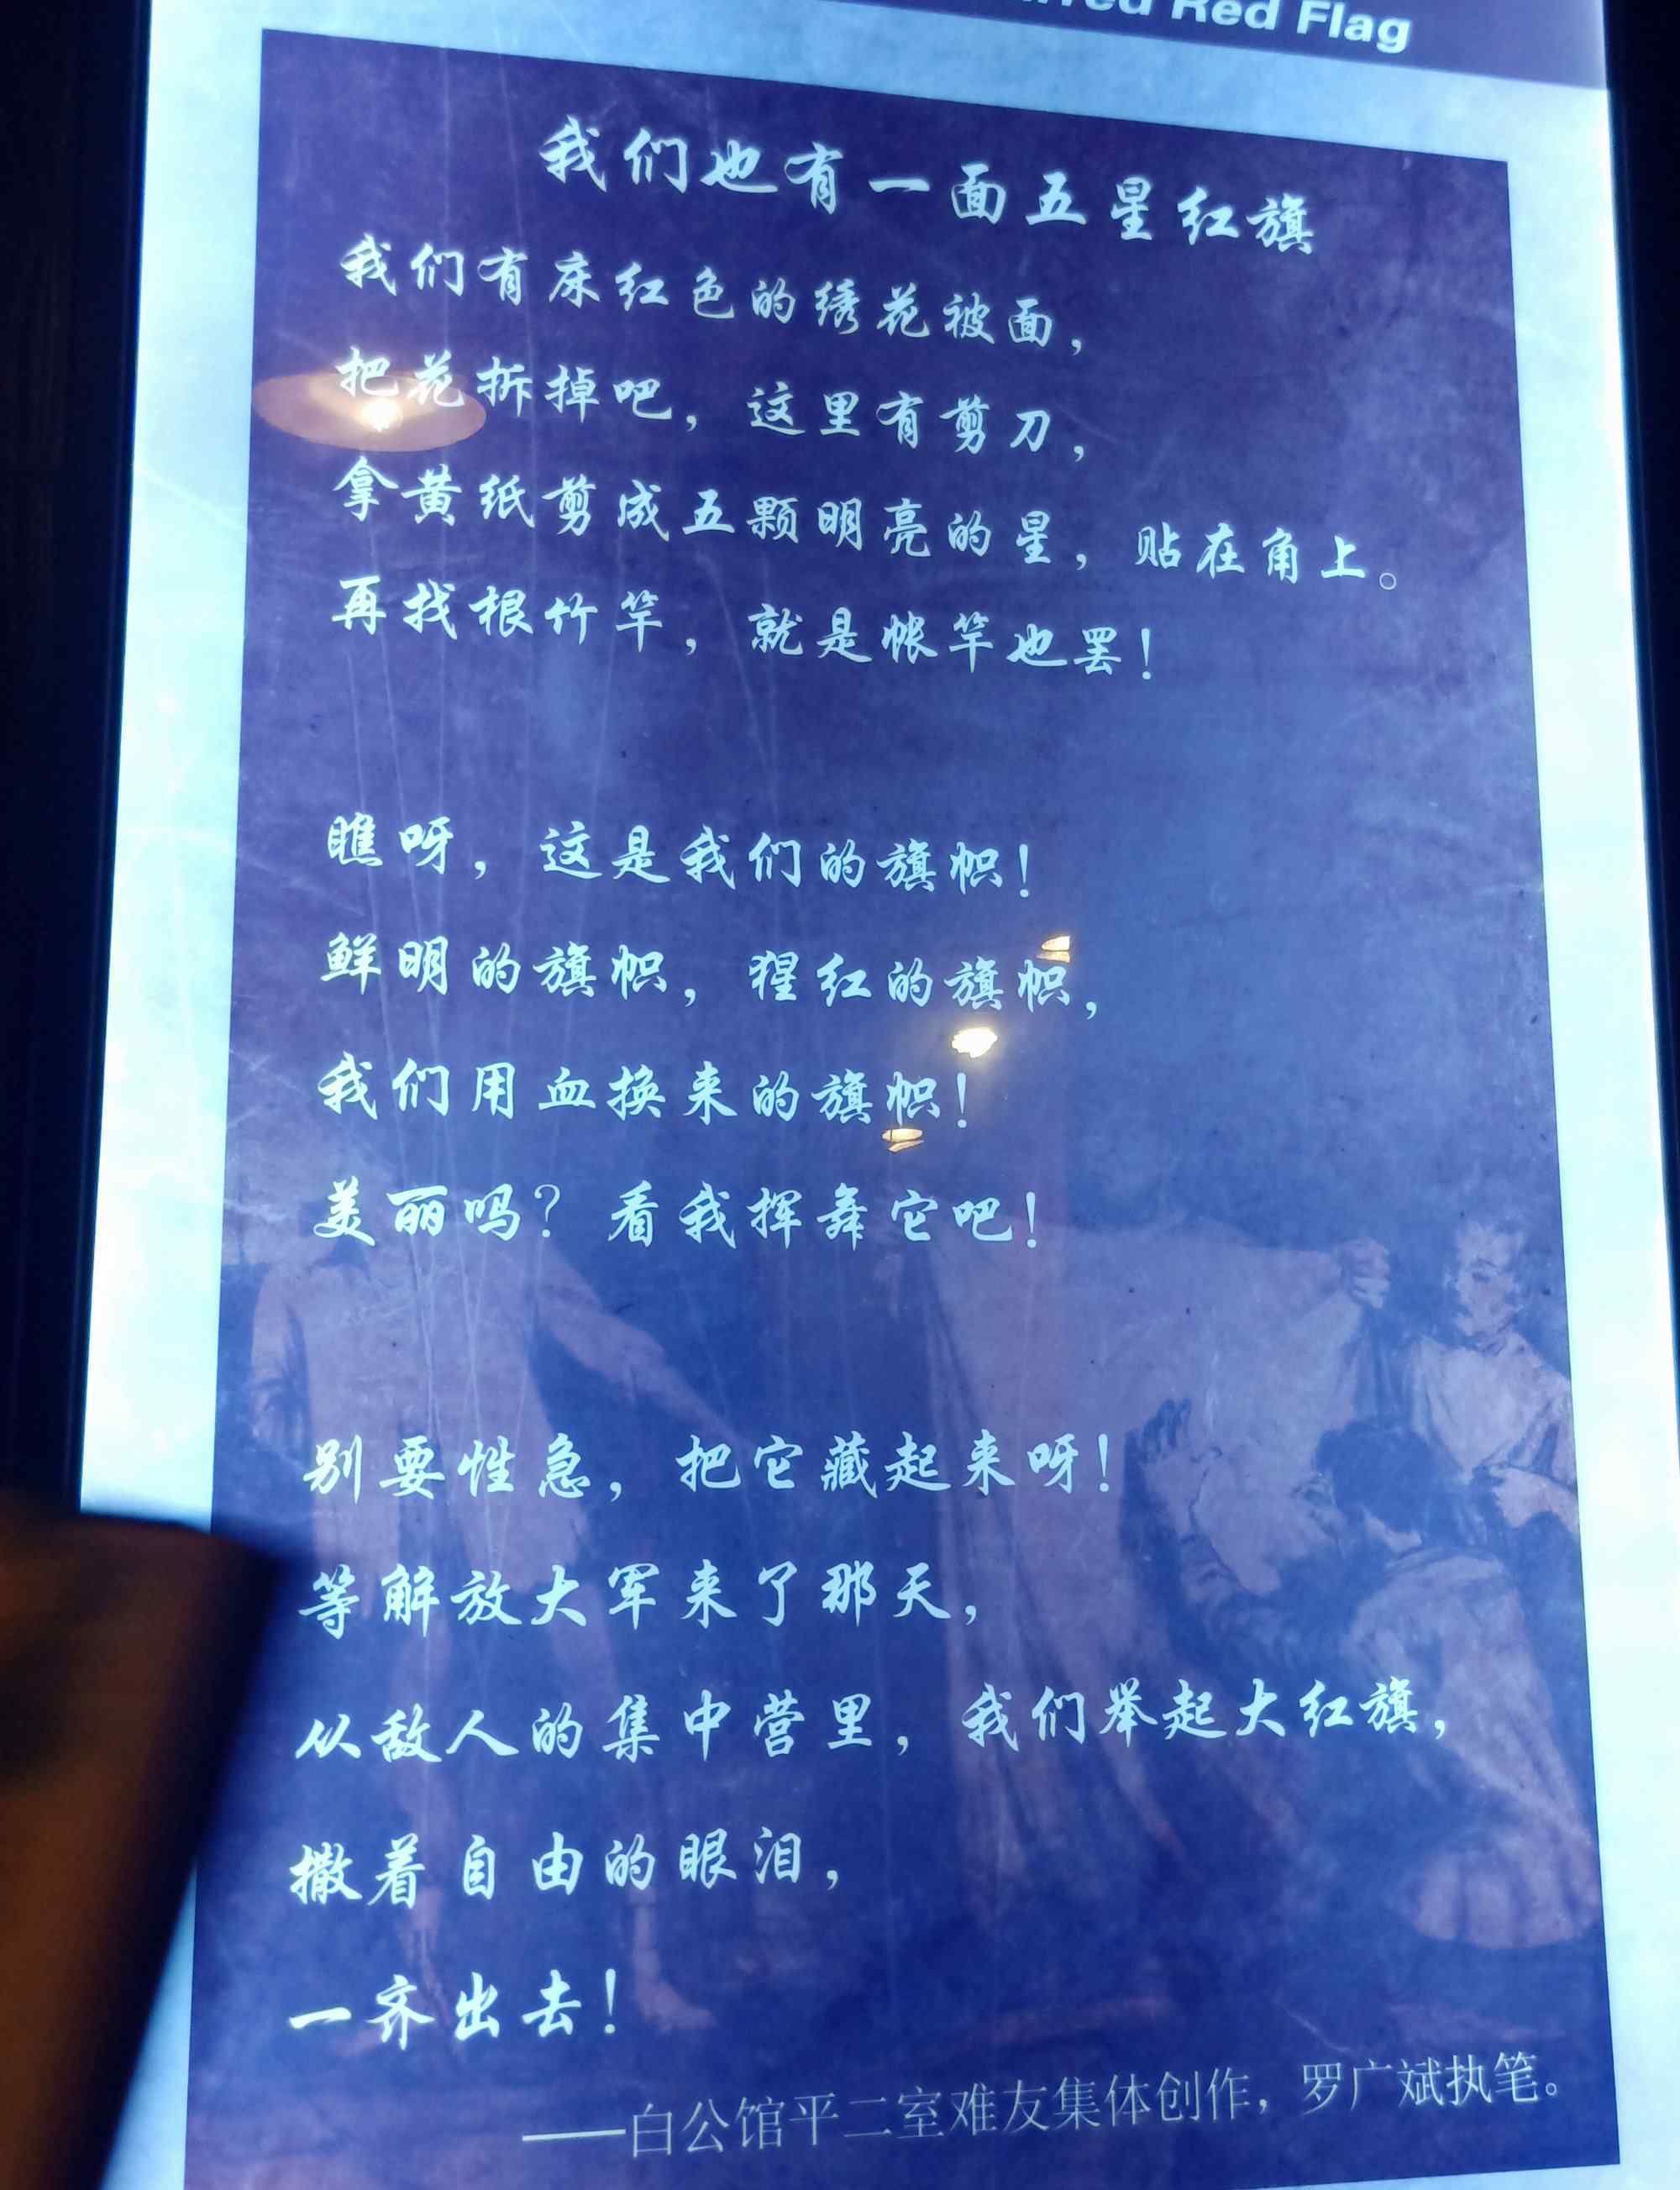 Red Flag
我们也有一面五星红旗
我们有床红色的绣花被面，
把花拆掉吧，这里有剪刀，
拿黄纸剪成五颗明亮的星，贴在角上。
再找根竹竿，就是帐竿也罢！
瞧呀，这是我们的旗帜！
鲜明的旗帜，猩红的旗帜，
我们用血换来的旗帜！
美丽吗？看我挥舞它吧！
别要性急，把它藏起来呀！
等解放大军来了那天，
从敌人的集中营里，我们举起大红旗，
撒着自由的眼泪，
一齐出去！
——白公馆平二室难友集体创作，罗广斌执笔。